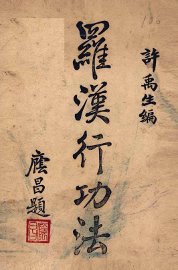 許禹生編
羅漢行功法
廕昌題